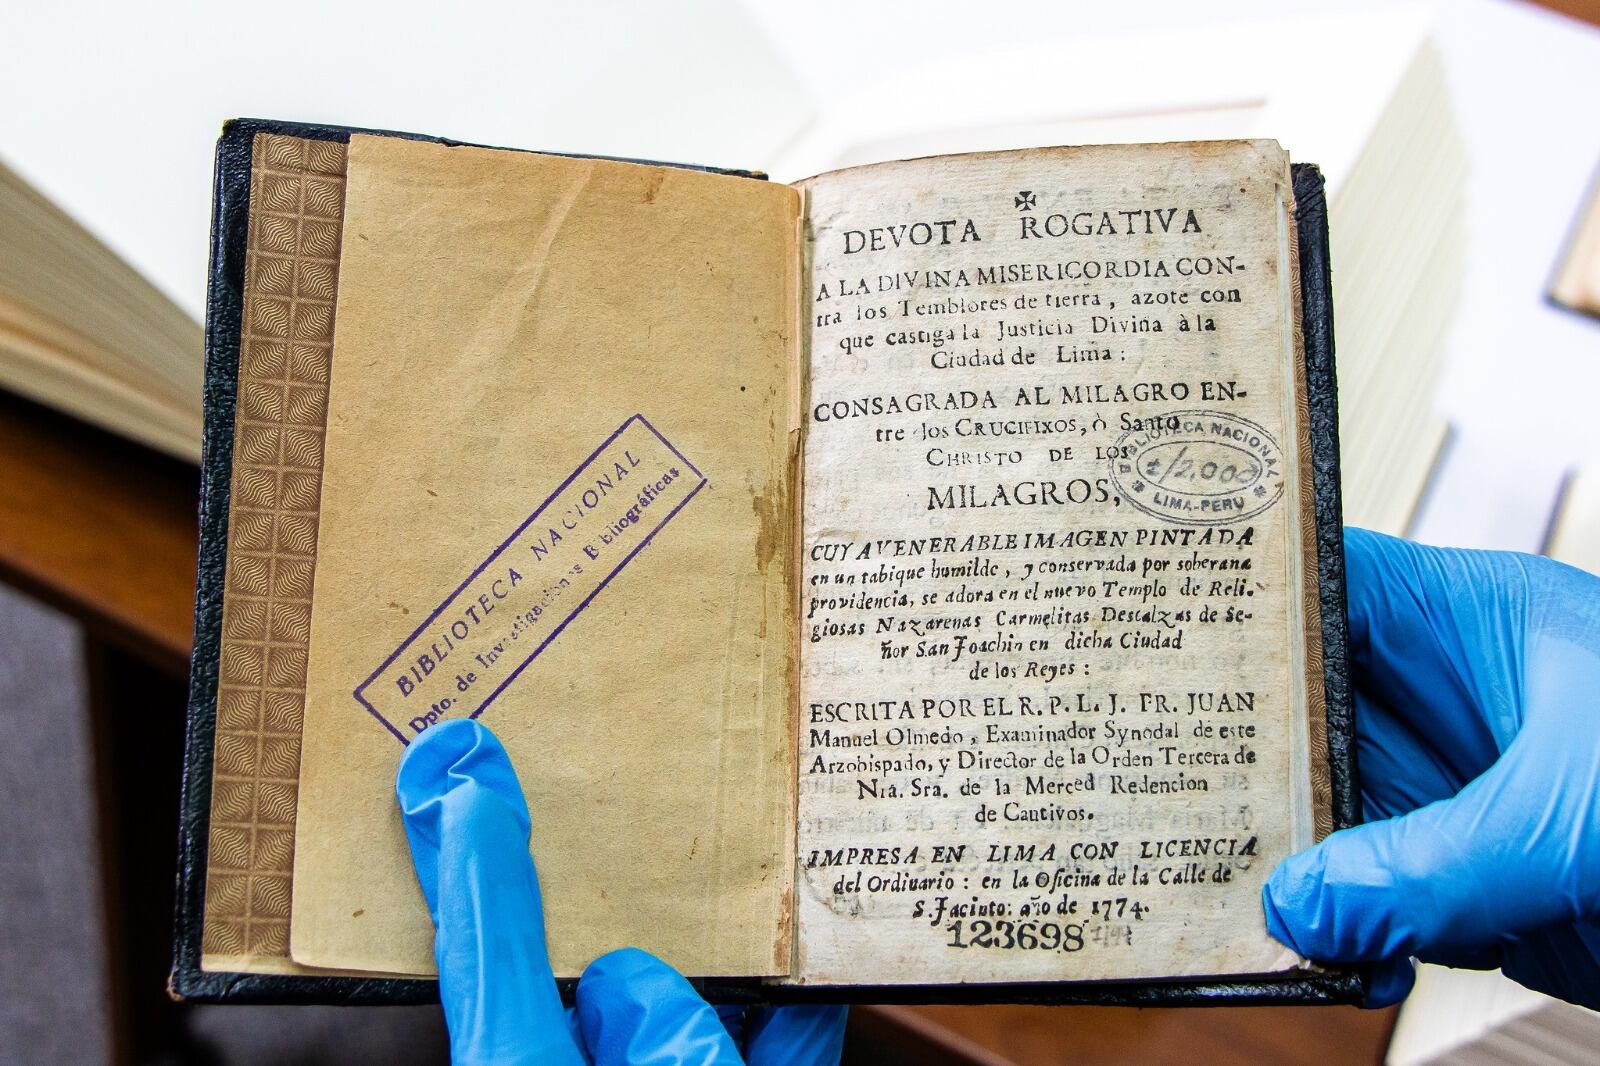 BIBLIOTECA NACIONAL
Dpto. de Investigaciones Bibliográficas
✠
DEVOTA ROGATIVA
A LA DIVINA MISERICORDIA CON-
tra los Temblores de tierra, azote con
que castiga la Justicia Divina à la
Ciudad de Lima:
CONSAGRADA AL MILAGRO EN-
tre los CRUCIFIXOS, ò Santo
CHRISTO DE LOS
MILAGROS,
BIBLIOTECA NACIONAL
LIMA-PERU
CUYA VENERABLE IMAGEN PINTADA
en un tabique humilde, y conservada por soberana
providencia, se adora en el nuevo Templo de Reli-
giosas Nazarenas Carmelitas Descalzas de Se-
ñor San Joachin en dicha Ciudad
de los Reyes:
ESCRITA POR EL R. P. L. J. FR. JUAN
Manuel Olmedo, Examinador Synodal de este
Arzobispado, y Director de la Orden Tercera de
Nrâ. Sra. de la Merced Redencion
de Cautivos.
IMPRESA EN LIMA CON LICENCIA
del Ordinario: en la Oficina de la Calle de
S. Jacinto: año de 1774.
123698